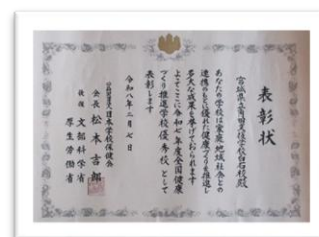 表彰状
宮城県立角田支援学校白石校殿
あなたの学校は家庭地域社会との
連携のもと優れた健康づくりを推進し
多大な成果を挙げておられます
よってここに令和七年度全国健康
づくり推進学校優秀校として
表彰します
令和八年二月七日
公益財団法人日本学校保健会
会長 松本吉郎
後援 文部科学省
厚生労働省